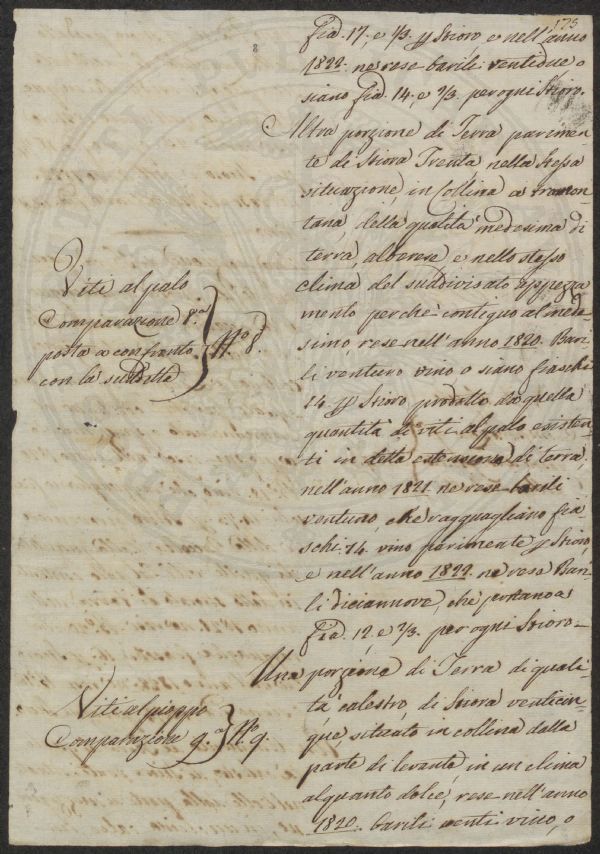 173
fia. 17. e 1/3. p Stioro e nell'anno
1822. ne rese barili ventidue o
siano fia. 14. e 2/3. per ogni Stioro.
Altra porzione di Terra parimen-
te di Stiora Trenta nella stessa
situazione, in Collina a tramon-
tana, della qualità medesima di
terra, alberese e nello stesso
clima del suddivisato appezza
mento perchè contiguo al mede
simo, rese nell'anno 1820. Bari
li ventuno vino o siano fiaschi
14 p Stioro prodotto da quella
quantità di viti al palo esisten-
ti in detta estensione di terra
nell'anno 1821. ne rese barili
ventuno che ragguagliano fia
schi. 14. vino parimente p Stioro,
e nell'anno 1822. ne rese Bari
li diciannove, che portano a
fia. 12. e 2/3. per ogni Stioro-
Una porzione di Terra di quali
tà calestro, di Stiora venticin-
que, situato in collina dalla
parte di levante in un clima
alquanto dolce, rese nell'anno
1820. barili venti vino, o
Viti al palo
Comparazione 8.a
posta a confronto
con la suddetta
N.o 8.
Viti al pioppo
Comparazione 9.a
N. 9.